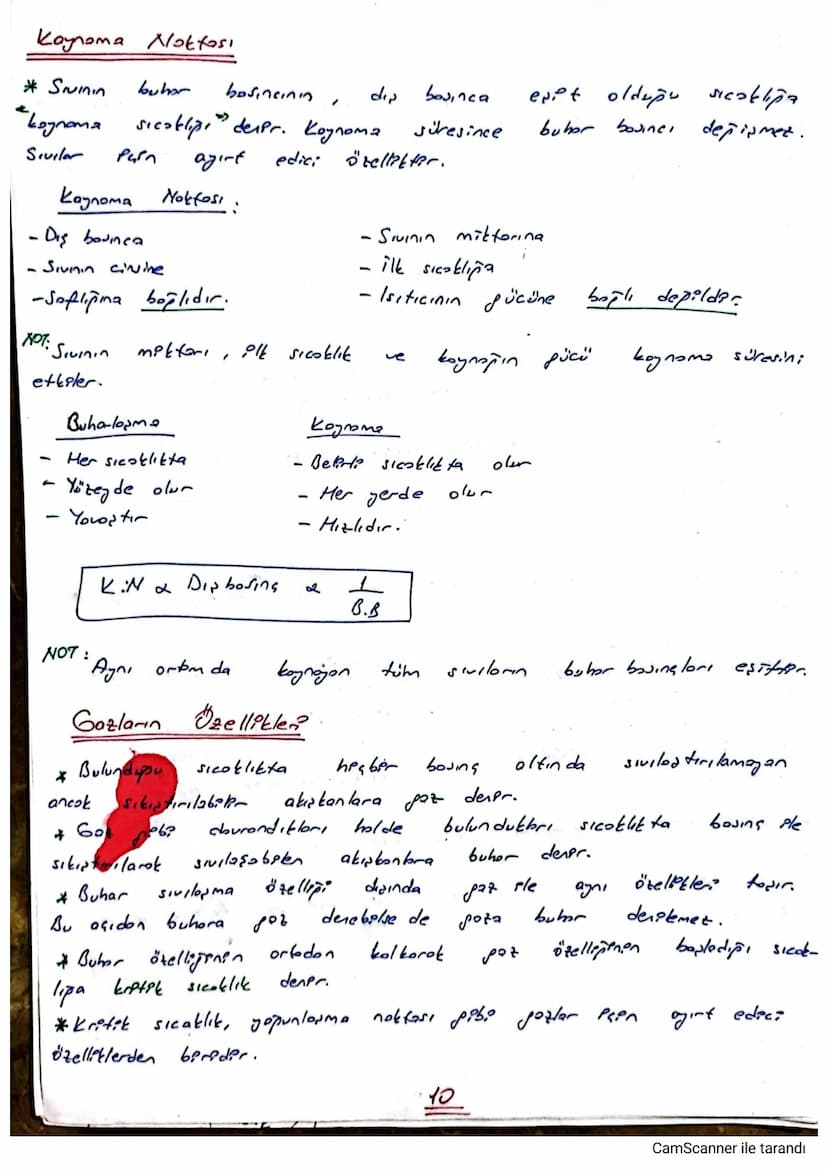 Kaynama Noktası
* Sıvının buhar basıncının, dış basınca eşit olduğu sıcaklığa
"kaynama sıcaklığı" denir. Kaynama süresince buhar basıncı değişmez.
Sıvılar için ayırt edici özelliktir.
Kaynama Noktası:
- Dış basınca - Sıvının miktarına
- Sıvının cinsine - İlk sıcaklığa
- Saflığına bağlıdır. - Isıtıcının gücüne bağlı değildir.
NOT: Sıvının miktarı, ilk sıcaklık ve kaynağın gücü kaynama süresini
etkiler.
Buharlaşma Kaynama
- Her sıcaklıkta - Belirli sıcaklıkta olur
- Yüzeyde olur - Her yerde olur
- Yavaştır - Hızlıdır.
K.N α Dış basınç α 1/B.B
NOT: Aynı ortamda kaynayan tüm sıvıların buhar basınçları eşittir.
Gazların Özellikleri
* Bulunduğu sıcaklıkta hiçbir basınç altında sıvılaştırılamayan
ancak sıkıştırılabilir akışkanlara gaz denir.
* Gaz gibi davrandıkları halde bulundukları sıcaklıkta basınç ile
sıkıştırılarak sıvılaşabilen akışkanlara buhar denir.
* Buhar sıvılaşma özelliği dışında gaz ile aynı özellikleri taşır.
Bu açıdan buhara gaz denebilse de gaza buhar denilemez.
* Buhar özelliğinin ortadan kalkarak gaz özelliğinin başladığı sıcak-
lığa kritik sıcaklık denir.
* Kritik sıcaklık, yoğunlaşma noktası gibi gazlar için ayırt edici
özelliklerden biridir.
10
CamScanner ile tarandı